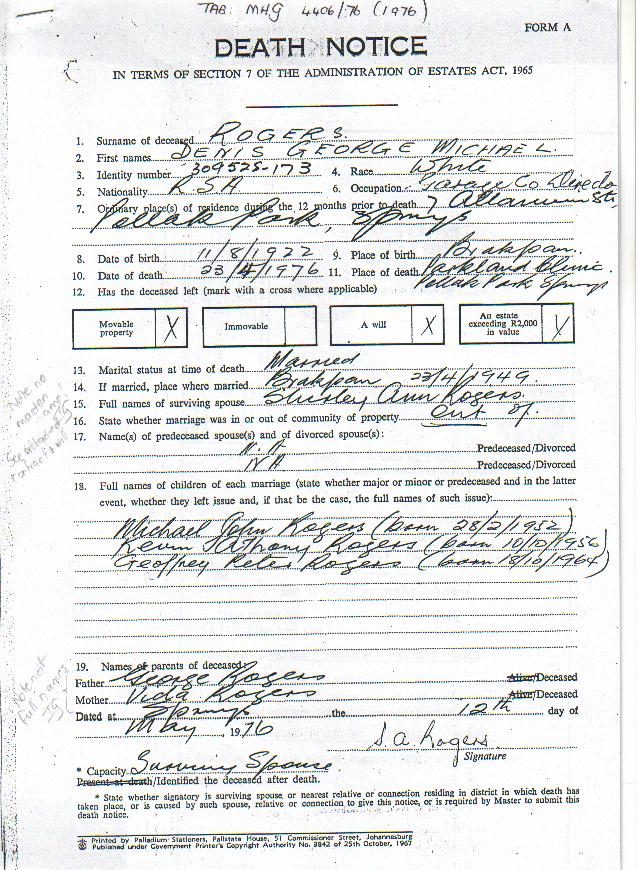 TAB: MHG 4406/76 (1976)
FORM A
DEATH NOTICE
IN TERMS OF SECTION 7 OF THE ADMINISTRATION OF ESTATES ACT, 1965
1. Surname of deceased ROGERS.
2. First names DENIS GEORGE MICHAEL.
3. Identity number 309525-173 4. Race White
5. Nationality RSA 6. Occupation Garage Co Director
7. Ordinary place(s) of residence during the 12 months prior to death 7
Pollak Park, Springs
8. Date of birth 11/8/1922 9. Place of birth Brakpan.
10. Date of death 23/4/1976 11. Place of death Parkland Clinic.
Pollak Park Springs
12. Has the deceased left (mark with a cross where applicable)
Movable property X Immovable A will X An estate exceeding R2,000 in value X
13. Marital status at time of death Married
14. If married, place where married Brakpan 23/4/1949.
15. Full names of surviving spouse Shirley Ann Rogers.
16. State whether marriage was in or out of community of property out of.
17. Name(s) of predeceased spouse(s) and of divorced spouse(s):
N.A. Predeceased/Divorced
NA Predeceased/Divorced
18. Full names of children of each marriage (state whether major or minor or predeceased and in the latter
event, whether they left issue and, if that be the case, the full names of such issue):
Michael John Rogers (born 28/2/1952)
Kevin Anthony Rogers (born 10/10/1956)
Geoffrey Peter Rogers (born 18/10/1964)
19. Names of parents of deceased:
Father George Rogers Alive/Deceased
Mother Veda Rogers Alive/Deceased
Dated at Springs the 12th day of
May, 1976
S.A. Rogers.
Signature
* Capacity Surviving Spouse.
Present at death/Identified the deceased after death.
* State whether signatory is surviving spouse or nearest relative or connection residing in district in which death has
taken place, or is caused by such spouse, relative or connection to give this notice, or is required by Master to submit this
death notice.
Printed by Palladium Stationers, Pallstate House, 51 Commissioner Street, Johannesburg
Published under Government Printer's Copyright Authority No. 3842 of 25th October, 1967
Note not
full names